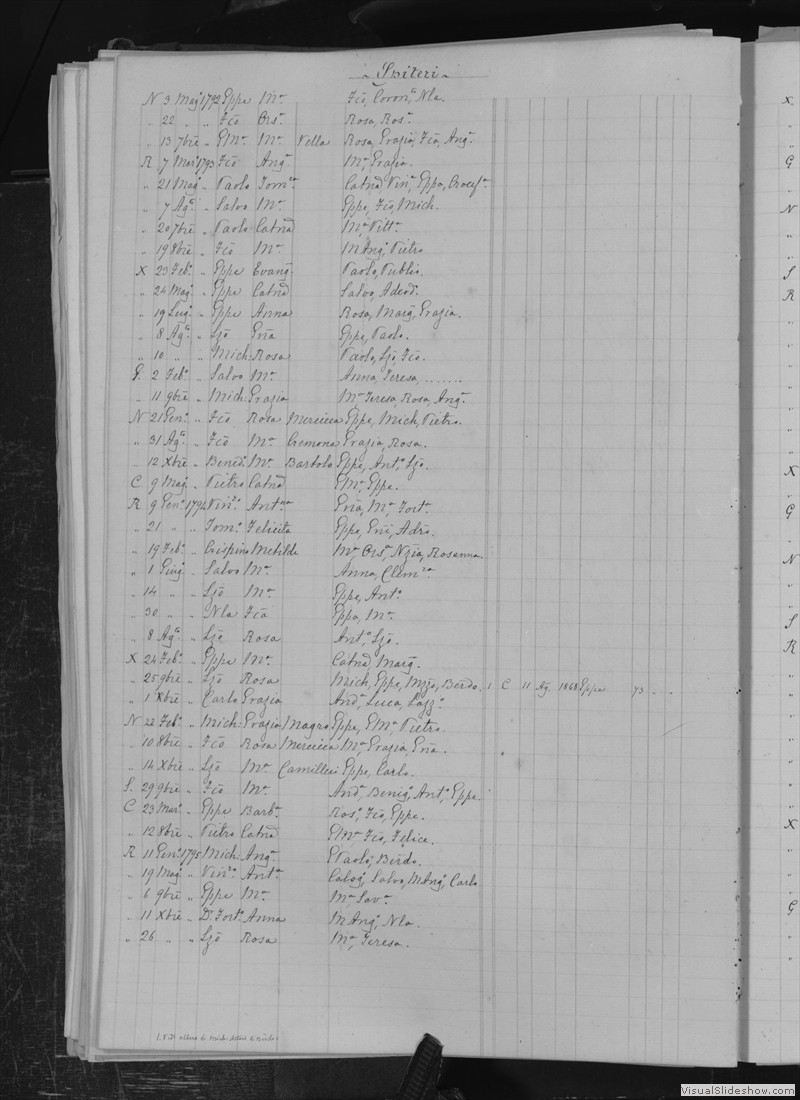 Spiteri
N 3 Mag. 1792 Eppe Ma Fco, Coron.a Nla.
" 22 " " Fco Ors.a Rosa, Ros.o
" 13 7bre " EMa Ma Vella Rosa, Grazia, Fca, Ang.a
R 7 Mar. 1793 Fco Ang.a Ma, Grazia.
" 21 Mag. " Paolo Tom.ca Catna Vin.o, Eppa, Crocif.o
" 7 Ag.o " Salvo Ma Eppe, Fco, Mich.
" 20 7bre " Paolo Catna Ma Vitt.a
" 19 8bre " Fco Ma MAng.o, Pietro
X 23 Feb.o " Eppe Evang. Paolo, Publio.
" 24 Mag. " Eppe Catna Salvo, Adeod.
" 19 Lug. " Eppe Anna Rosa, Marg., Grazia.
" 8 Ag.o " Ljo Gna Eppe, Paolo.
" 10 " " Mich: Rosa Paolo, Ljo, Fco.
G. 2 Feb.o " Salvo Ma Anna, Teresa, .......
" 11 9bre " Mich: Grazia Ma Teresa, Rosa, Ang.a
N 21 Gen.o " Fco Rosa Mercieca Eppe, Mich, Pietro.
" 31 Ag.o " Fco Ma Cremona Grazia, Rosa.
" 12 Xbre " Bened.o Ma Bartolo Eppe, Ant.o, Ljo.
C 9 Mag. " Pietro Catna EMa, Eppe.
R 9 Gen.o 1794 Vin.zo Ant.na Gna, Ma, Fort.o
" 21 " " Tom.o Felicita Eppe, Gni, Adro.
" 19 Feb.o " Crispino Metilde Ma, Ors.a, Nzia, Rosanna.
" 1 Giug. " Salvo Ma Anna, Clem.za
" 14 " " Ljo Ma Eppe, Ant.o
" 30 " " Nla Fca Eppa, Ma
" 8 Ag.o " Ljo Rosa Ant.o, Ljo.
X 24 Feb.o " Eppe Ma Catna, Marg.
" 25 9bre " Ljo Rosa Mich, Eppe, Mzo, Berdo. 1 C 11 Ag. 1868 Eppa 73 " "
" 1 Xbre " Carlo Grazia And.a, Luca, Lazz.o
N 22 Feb.o " Mich: Grazia Magro Eppe, EMa, Pietro.
" 10 8bre " Fco Rosa Mercieca Ma, Grazia, Gna.
" 14 Xbre " Ljo Ma Camilleri Eppe, Carlo.
S. 29 9bre " Fco Ma And.a, Benig.o, Ant.o, Eppe.
C 23 Mar. " Eppe Barb.a Ros.o, Fco, Eppe.
" 12 8bre " Pietro Catna EMa, Fco, Felice.
R 11 Gen.o 1795 Mich: Ang.a GPaolo, Berdo.
" 19 Mag. " Vin.zo Ant.a Calog.o, Salvo, MAng.o, Carlo
" 6 9bre " Eppe Ma Ma Sav.a
" 11 Xbre " Dr Fort.o Anna MAng.o, Nla.
" 26 " " Ljo Rosa Ma, Teresa.
VisualSlideshow.com